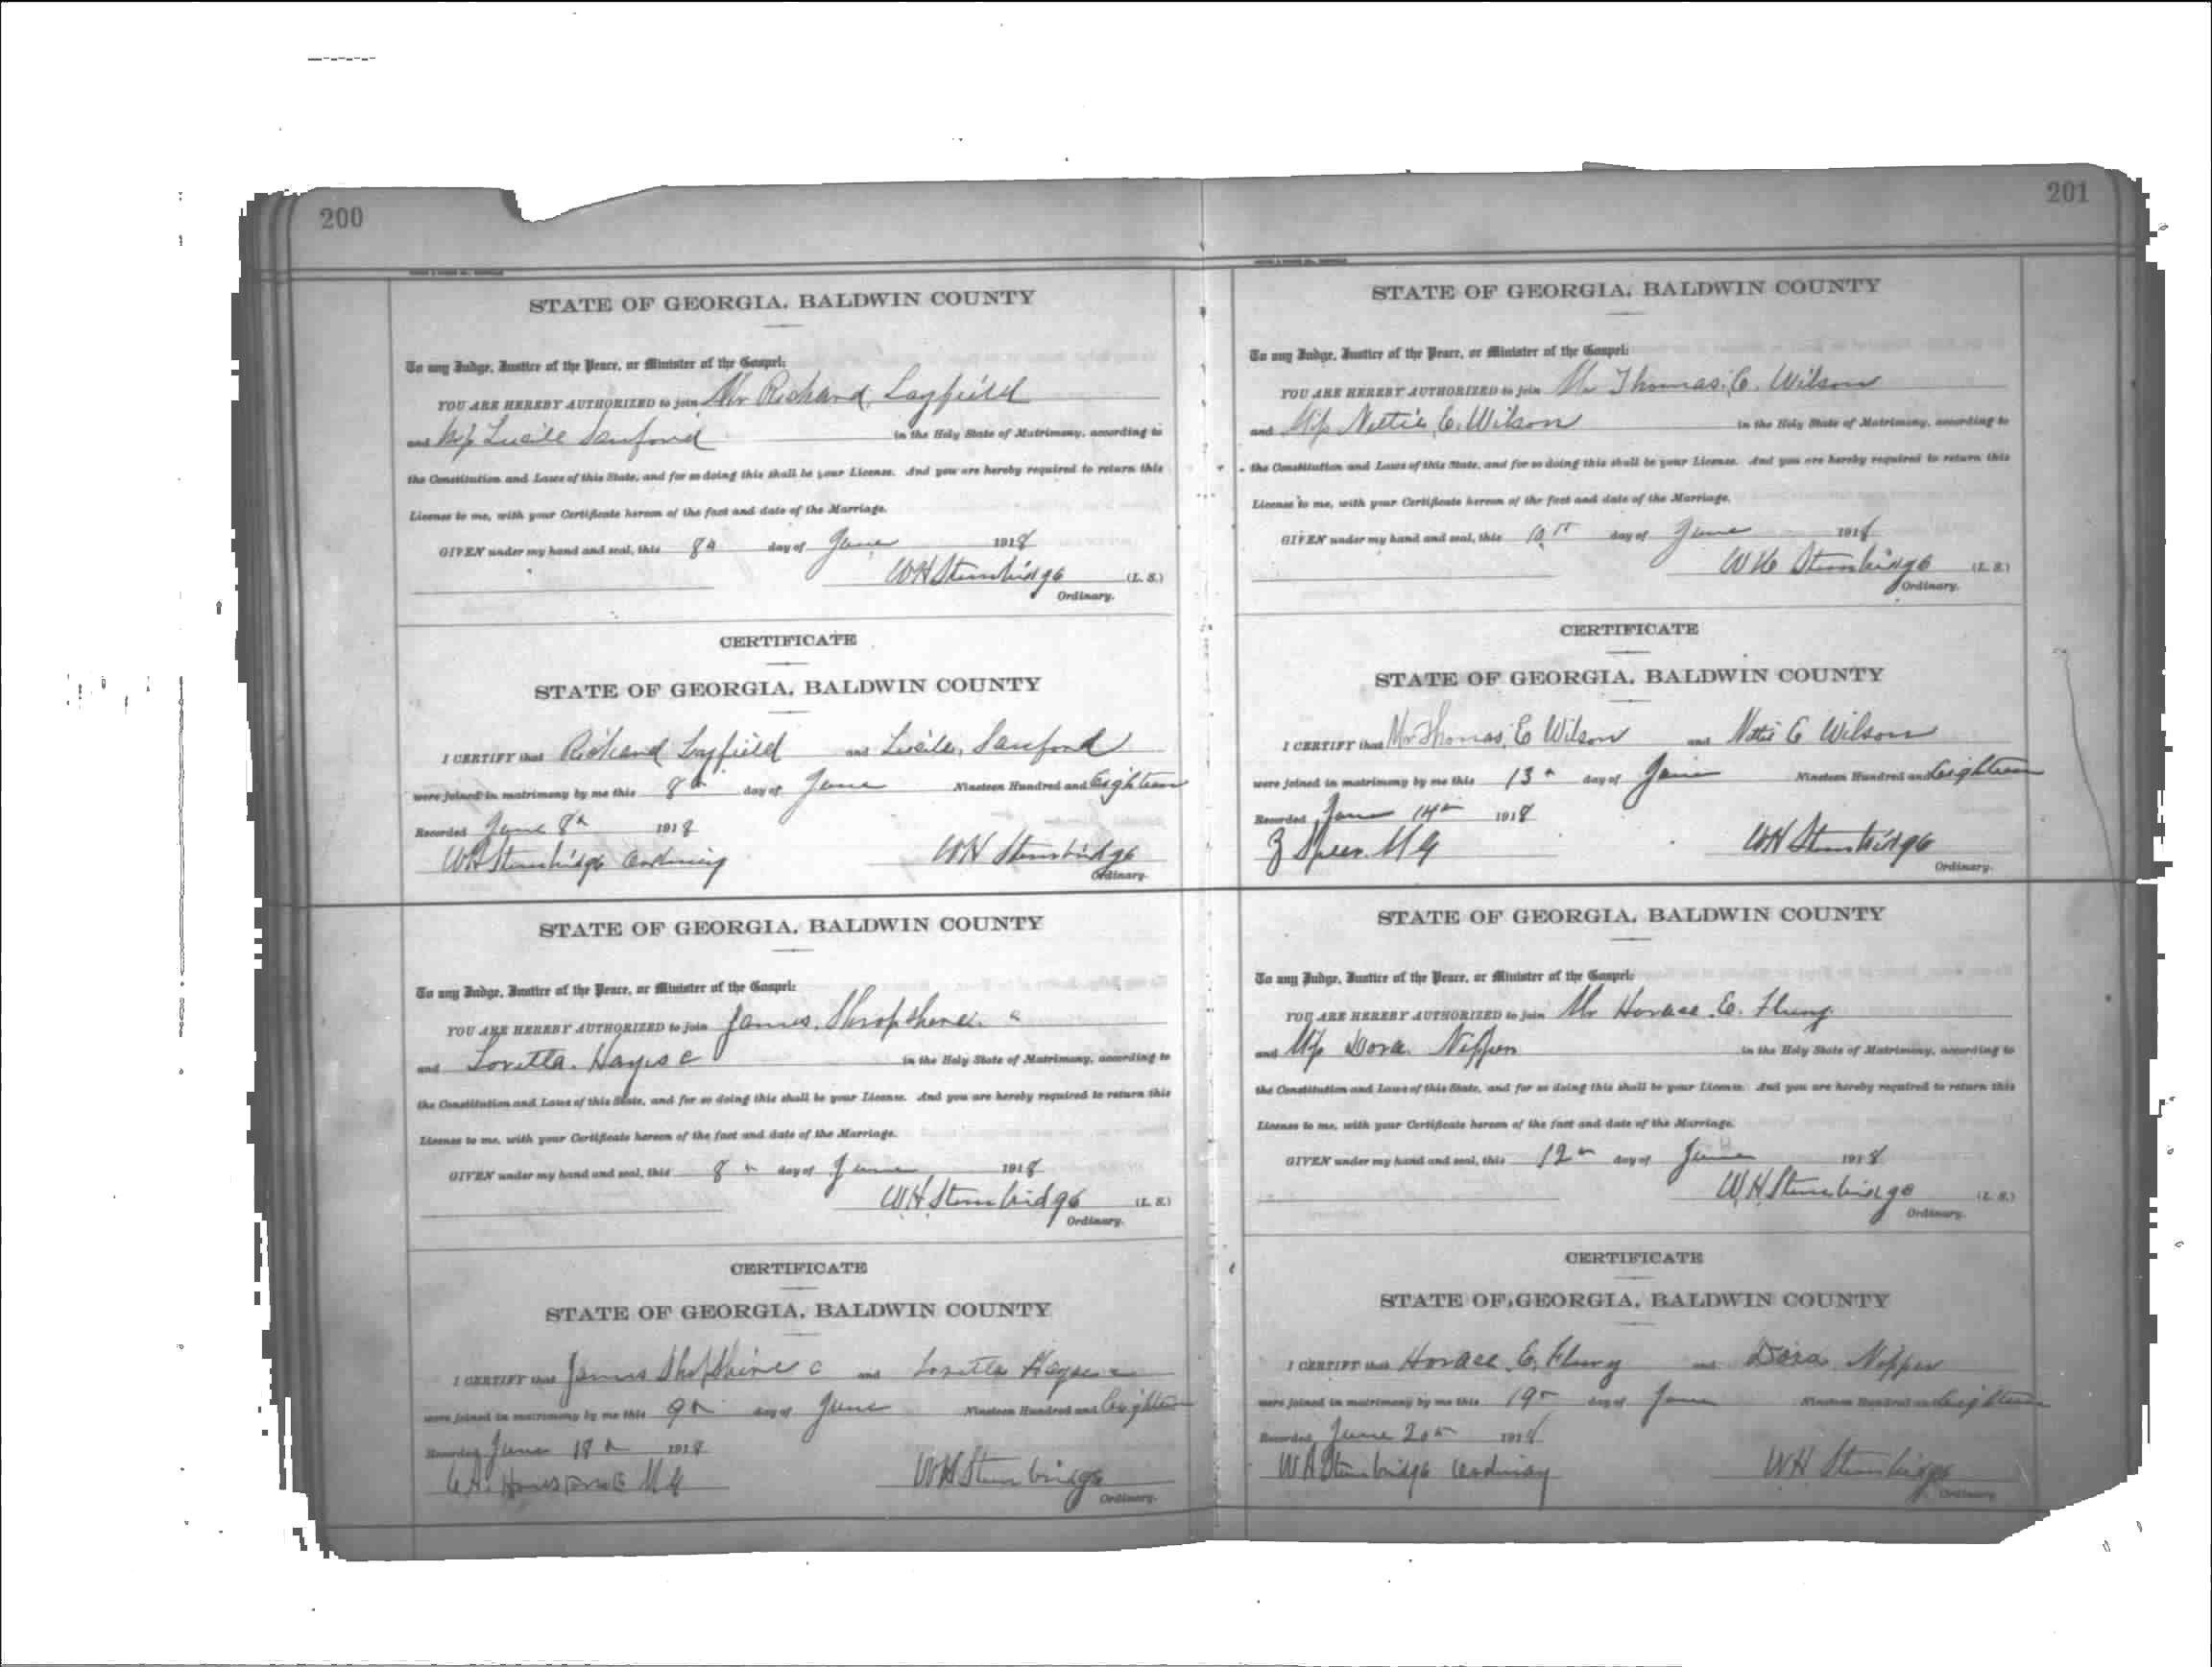 200
STATE OF GEORGIA, BALDWIN COUNTY
To any Judge, Justice of the Peace, or Minister of the Gospel:
YOU ARE HEREBY AUTHORIZED to join Mr Richard Layfield
and Miss Lucile Sanford in the Holy State of Matrimony, according to
the Constitution and Laws of this State, and for so doing this shall be your License. And you are hereby required to return this
License to me, with your Certificate hereon of the fact and date of the Marriage.
GIVEN under my hand and seal, this 8th day of June 1918
WH Stembridge (L. S.)
Ordinary.
CERTIFICATE
STATE OF GEORGIA, BALDWIN COUNTY
I CERTIFY that Richard Layfield and Lucile Sanford
were joined in matrimony by me this 8th day of June Nineteen Hundred and Eighteen
Recorded June 8th 1918
WH Stembridge Ordinary WH Stembridge
Ordinary.
STATE OF GEORGIA, BALDWIN COUNTY
To any Judge, Justice of the Peace, or Minister of the Gospel:
YOU ARE HEREBY AUTHORIZED to join James Shropshire c
and Loretta Hayes c in the Holy State of Matrimony, according to
the Constitution and Laws of this State, and for so doing this shall be your License. And you are hereby required to return this
License to me, with your Certificate hereon of the fact and date of the Marriage.
GIVEN under my hand and seal, this 8th day of June 1918
WH Stembridge (L. S.)
Ordinary.
CERTIFICATE
STATE OF GEORGIA, BALDWIN COUNTY
I CERTIFY that James Shopshire c and Loretta Hayes c
were joined in matrimony by me this 9th day of June Nineteen Hundred and Eighteen
Recorded June 18th 1918
M G WH Stembridge
Ordinary.
201
STATE OF GEORGIA, BALDWIN COUNTY
To any Judge, Justice of the Peace, or Minister of the Gospel:
YOU ARE HEREBY AUTHORIZED to join Mr Thomas C. Wilson
and Miss Nettie C. Wilson in the Holy State of Matrimony, according to
the Constitution and Laws of this State, and for so doing this shall be your License. And you are hereby required to return this
License to me, with your Certificate hereon of the fact and date of the Marriage.
GIVEN under my hand and seal, this 10th day of June 1918
WH Stembridge (L. S.)
Ordinary.
CERTIFICATE
STATE OF GEORGIA, BALDWIN COUNTY
I CERTIFY that Mr Thomas C Wilson and Nettie C Wilson
were joined in matrimony by me this 13th day of June Nineteen Hundred and Eighteen
Recorded June 14th 1918
Z Speer M G WH Stembridge
Ordinary.
STATE OF GEORGIA, BALDWIN COUNTY
To any Judge, Justice of the Peace, or Minister of the Gospel:
YOU ARE HEREBY AUTHORIZED to join Mr Horace E. Flury
and Miss Dora Nipper in the Holy State of Matrimony, according to
the Constitution and Laws of this State, and for so doing this shall be your License. And you are hereby required to return this
License to me, with your Certificate hereon of the fact and date of the Marriage.
GIVEN under my hand and seal, this 12th day of June 1918
WH Stembridge (L. S.)
Ordinary.
CERTIFICATE
STATE OF GEORGIA, BALDWIN COUNTY
I CERTIFY that Horace E. Flury and Dora Nipper
were joined in matrimony by me this 19th day of June Nineteen Hundred and Eighteen
Recorded June 20th 1918
WH Stembridge Ordinary WH Stembridge
Ordinary.